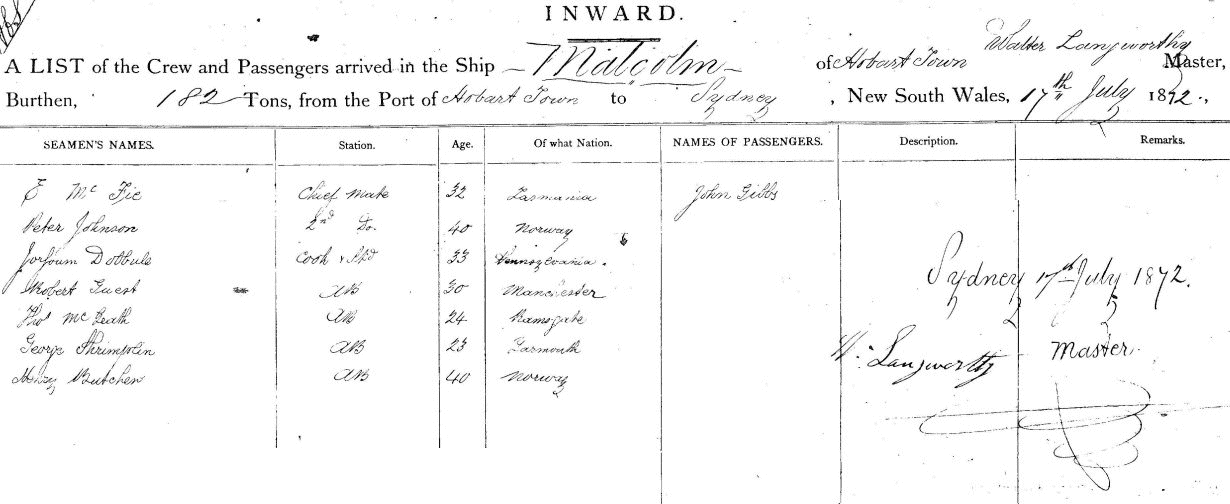 INWARD.
Walter Langworthy
A LIST of the Crew and Passengers arrived in the Ship Malcolm of Hobart Town Master,
Burthen, 182 Tons, from the Port of Hobart Town to Sydney, New South Wales, 17th July 1872.,
SEAMEN'S NAMES. Station. Age. Of what Nation. NAMES OF PASSENGERS. Description. Remarks.
E Mc Fie Chief Mate 32 Tasmania John Gibbs
Peter Johnson 2nd Do. 40 Norway
Cook & Std 33 Pennsylvania.
Robert Guest AB 30 Manchester
Thos Mc Beath AB 24 Ramsgate
George Shrimplin AB 23 Yarmouth
Butchen AB 40 Norway
Sydney 17th July 1872.
W. Langworthy Master